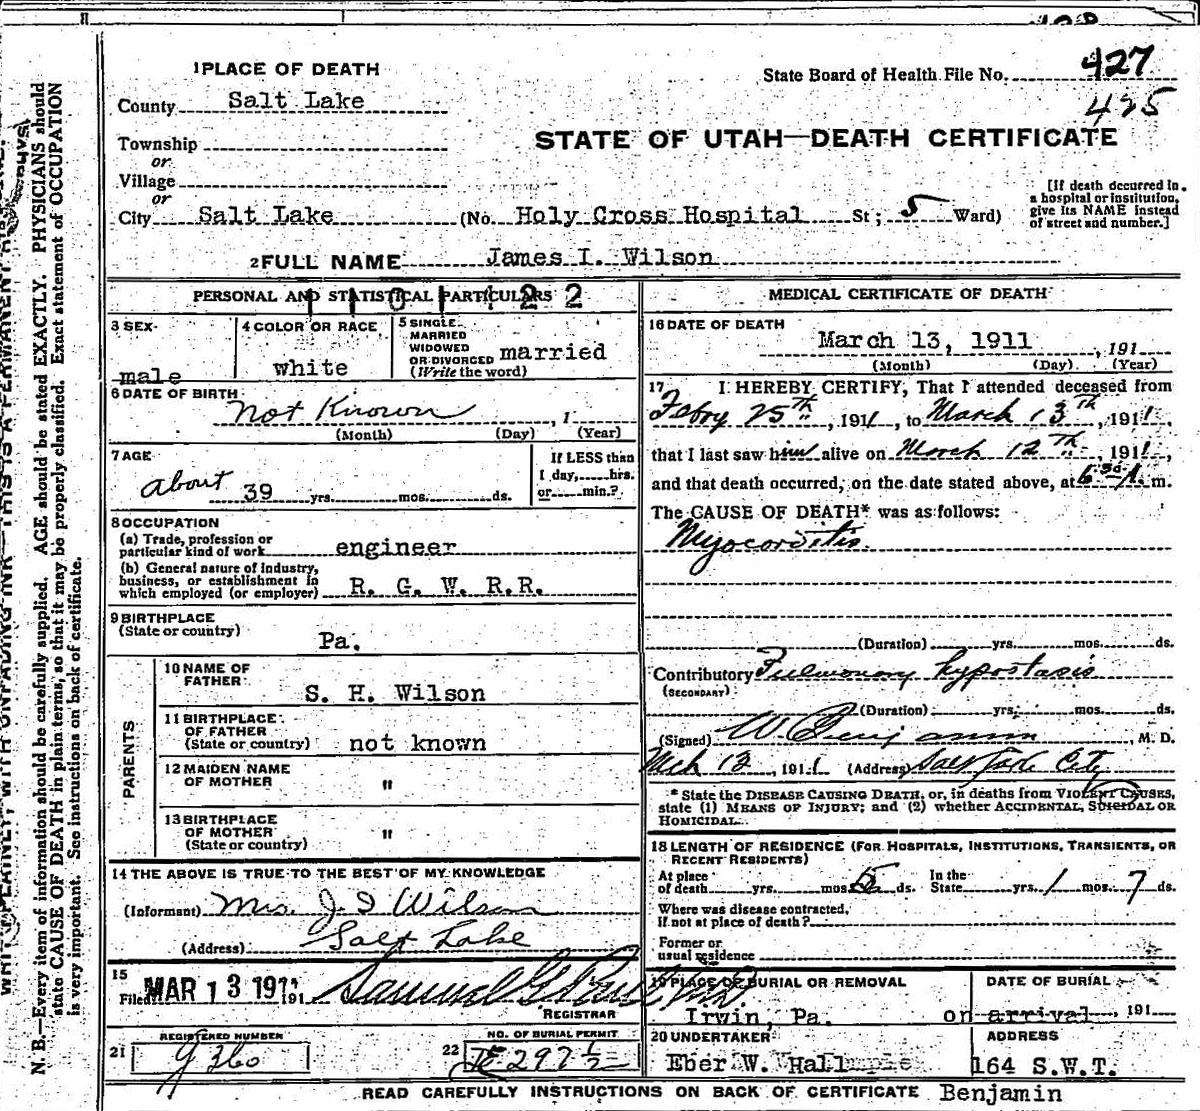 1 PLACE OF DEATH
County Salt Lake
Township
or
Village
or
City Salt Lake (No. Holy Cross Hospital St; 5 Ward)
State Board of Health File No. 427
425
STATE OF UTAH—DEATH CERTIFICATE
[If death occurred in a hospital or institution, give its NAME instead of street and number.]
2 FULL NAME James I. Wilson
PERSONAL AND STATISTICAL PARTICULARS
3 SEX male
4 COLOR OR RACE white
5 SINGLE MARRIED WIDOWED OR DIVORCED married
(Write the word)
6 DATE OF BIRTH not Known, 1
(Month) (Day) (Year)
7 AGE about 39 yrs. mos. ds.
If LESS than 1 day, hrs. or min.?
8 OCCUPATION
(a) Trade, profession or particular kind of work engineer
(b) General nature of industry, business, or establishment in which employed (or employer) R. G. W. R.R.
9 BIRTHPLACE
(State or country) Pa.
PARENTS
10 NAME OF FATHER S. H. Wilson
11 BIRTHPLACE OF FATHER
(State or country) not known
12 MAIDEN NAME OF MOTHER "
13 BIRTHPLACE OF MOTHER
(State or country) "
14 THE ABOVE IS TRUE TO THE BEST OF MY KNOWLEDGE
(Informant) Mrs. J I Wilson
(Address) Salt Lake
15 Filed MAR 13 1911 191
REGISTRAR
REGISTERED NUMBER
21 9360
NO. OF BURIAL PERMIT
22 E 297½
MEDICAL CERTIFICATE OF DEATH
16 DATE OF DEATH
March 13, 1911, 191
(Month) (Day) (Year)
17 I HEREBY CERTIFY, That I attended deceased from
Febry 25th, 1911, to March 13th, 1911,
that I last saw him alive on March 12th, 1911,
and that death occurred, on the date stated above, at 6:30 A. m.
The CAUSE OF DEATH* was as follows:
Myocarditis.
(Duration) yrs. mos. ds.
Contributory Pulmonary hypostasis
(SECONDARY)
(Duration) yrs. mos. ds.
(Signed) W Benjamin, M. D.
Mch 13, 1911 (Address) Salt Lake City
* State the DISEASE CAUSING DEATH, or, in deaths from VIOLENT CAUSES, state (1) MEANS OF INJURY; and (2) whether ACCIDENTAL, SUICIDAL OR HOMICIDAL.
18 LENGTH OF RESIDENCE (FOR HOSPITALS, INSTITUTIONS, TRANSIENTS, OR RECENT RESIDENTS)
At place of death yrs. mos. ds. In the State yrs. 1 mos. 7 ds.
Where was disease contracted, If not at place of death?
Former or usual residence
19 PLACE OF BURIAL OR REMOVAL
Irwin, Pa.
DATE OF BURIAL
on arrival, 191
20 UNDERTAKER
Eber W. Hall
ADDRESS
164 S.W.T.
READ CAREFULLY INSTRUCTIONS ON BACK OF CERTIFICATE Benjamin
N. B.—Every item of information should be carefully supplied. AGE should be stated EXACTLY. PHYSICIANS should
state CAUSE OF DEATH in plain terms, so that it may be properly classified. Exact statement of OCCUPATION
is very important. See instructions on back of certificate.